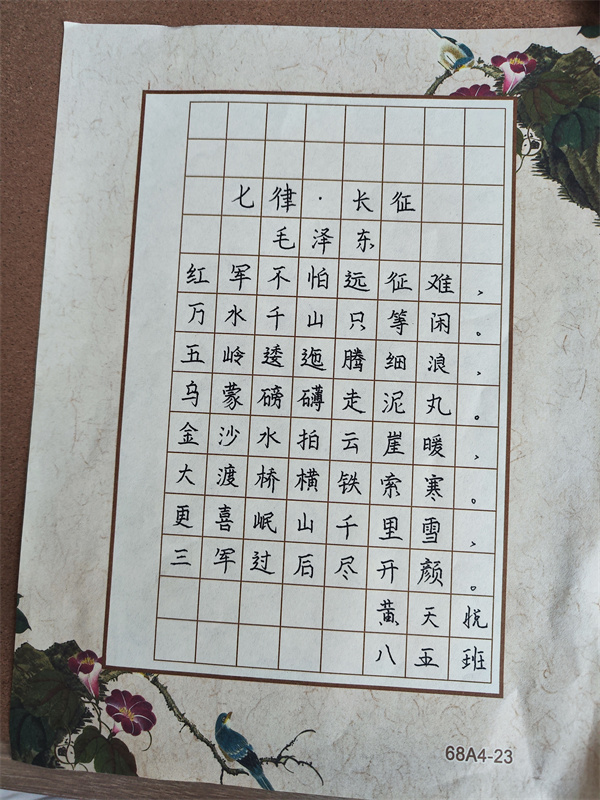 七律·长征
毛泽东
红军不怕远征难，
万水千山只等闲。
五岭逶迤腾细浪，
乌蒙磅礴走泥丸。
金沙水拍云崖暖，
大渡桥横铁索寒。
更喜岷山千里雪，
三军过后尽开颜。
黄天悦
八五班
68A4-23